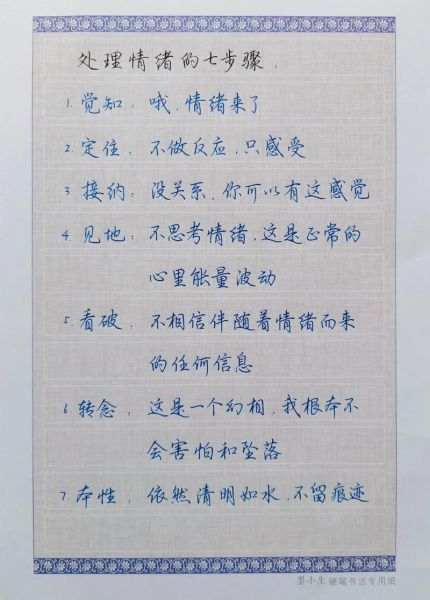 处理情绪的七步骤：
1.觉知：哦，情绪来了
2.定住：不做反应，只感受
3.接纳：没关系，你可以有这感觉
4.见地：不思考情绪，这是正常的
心里能量波动
5.看破：不相信伴随着情绪而来
的任何信息
6.转念：这是一个幻相，我根本不
会害怕和坠落
7.本性：依然清明如水，不留痕迹
墨小生 硬笔书法专用纸